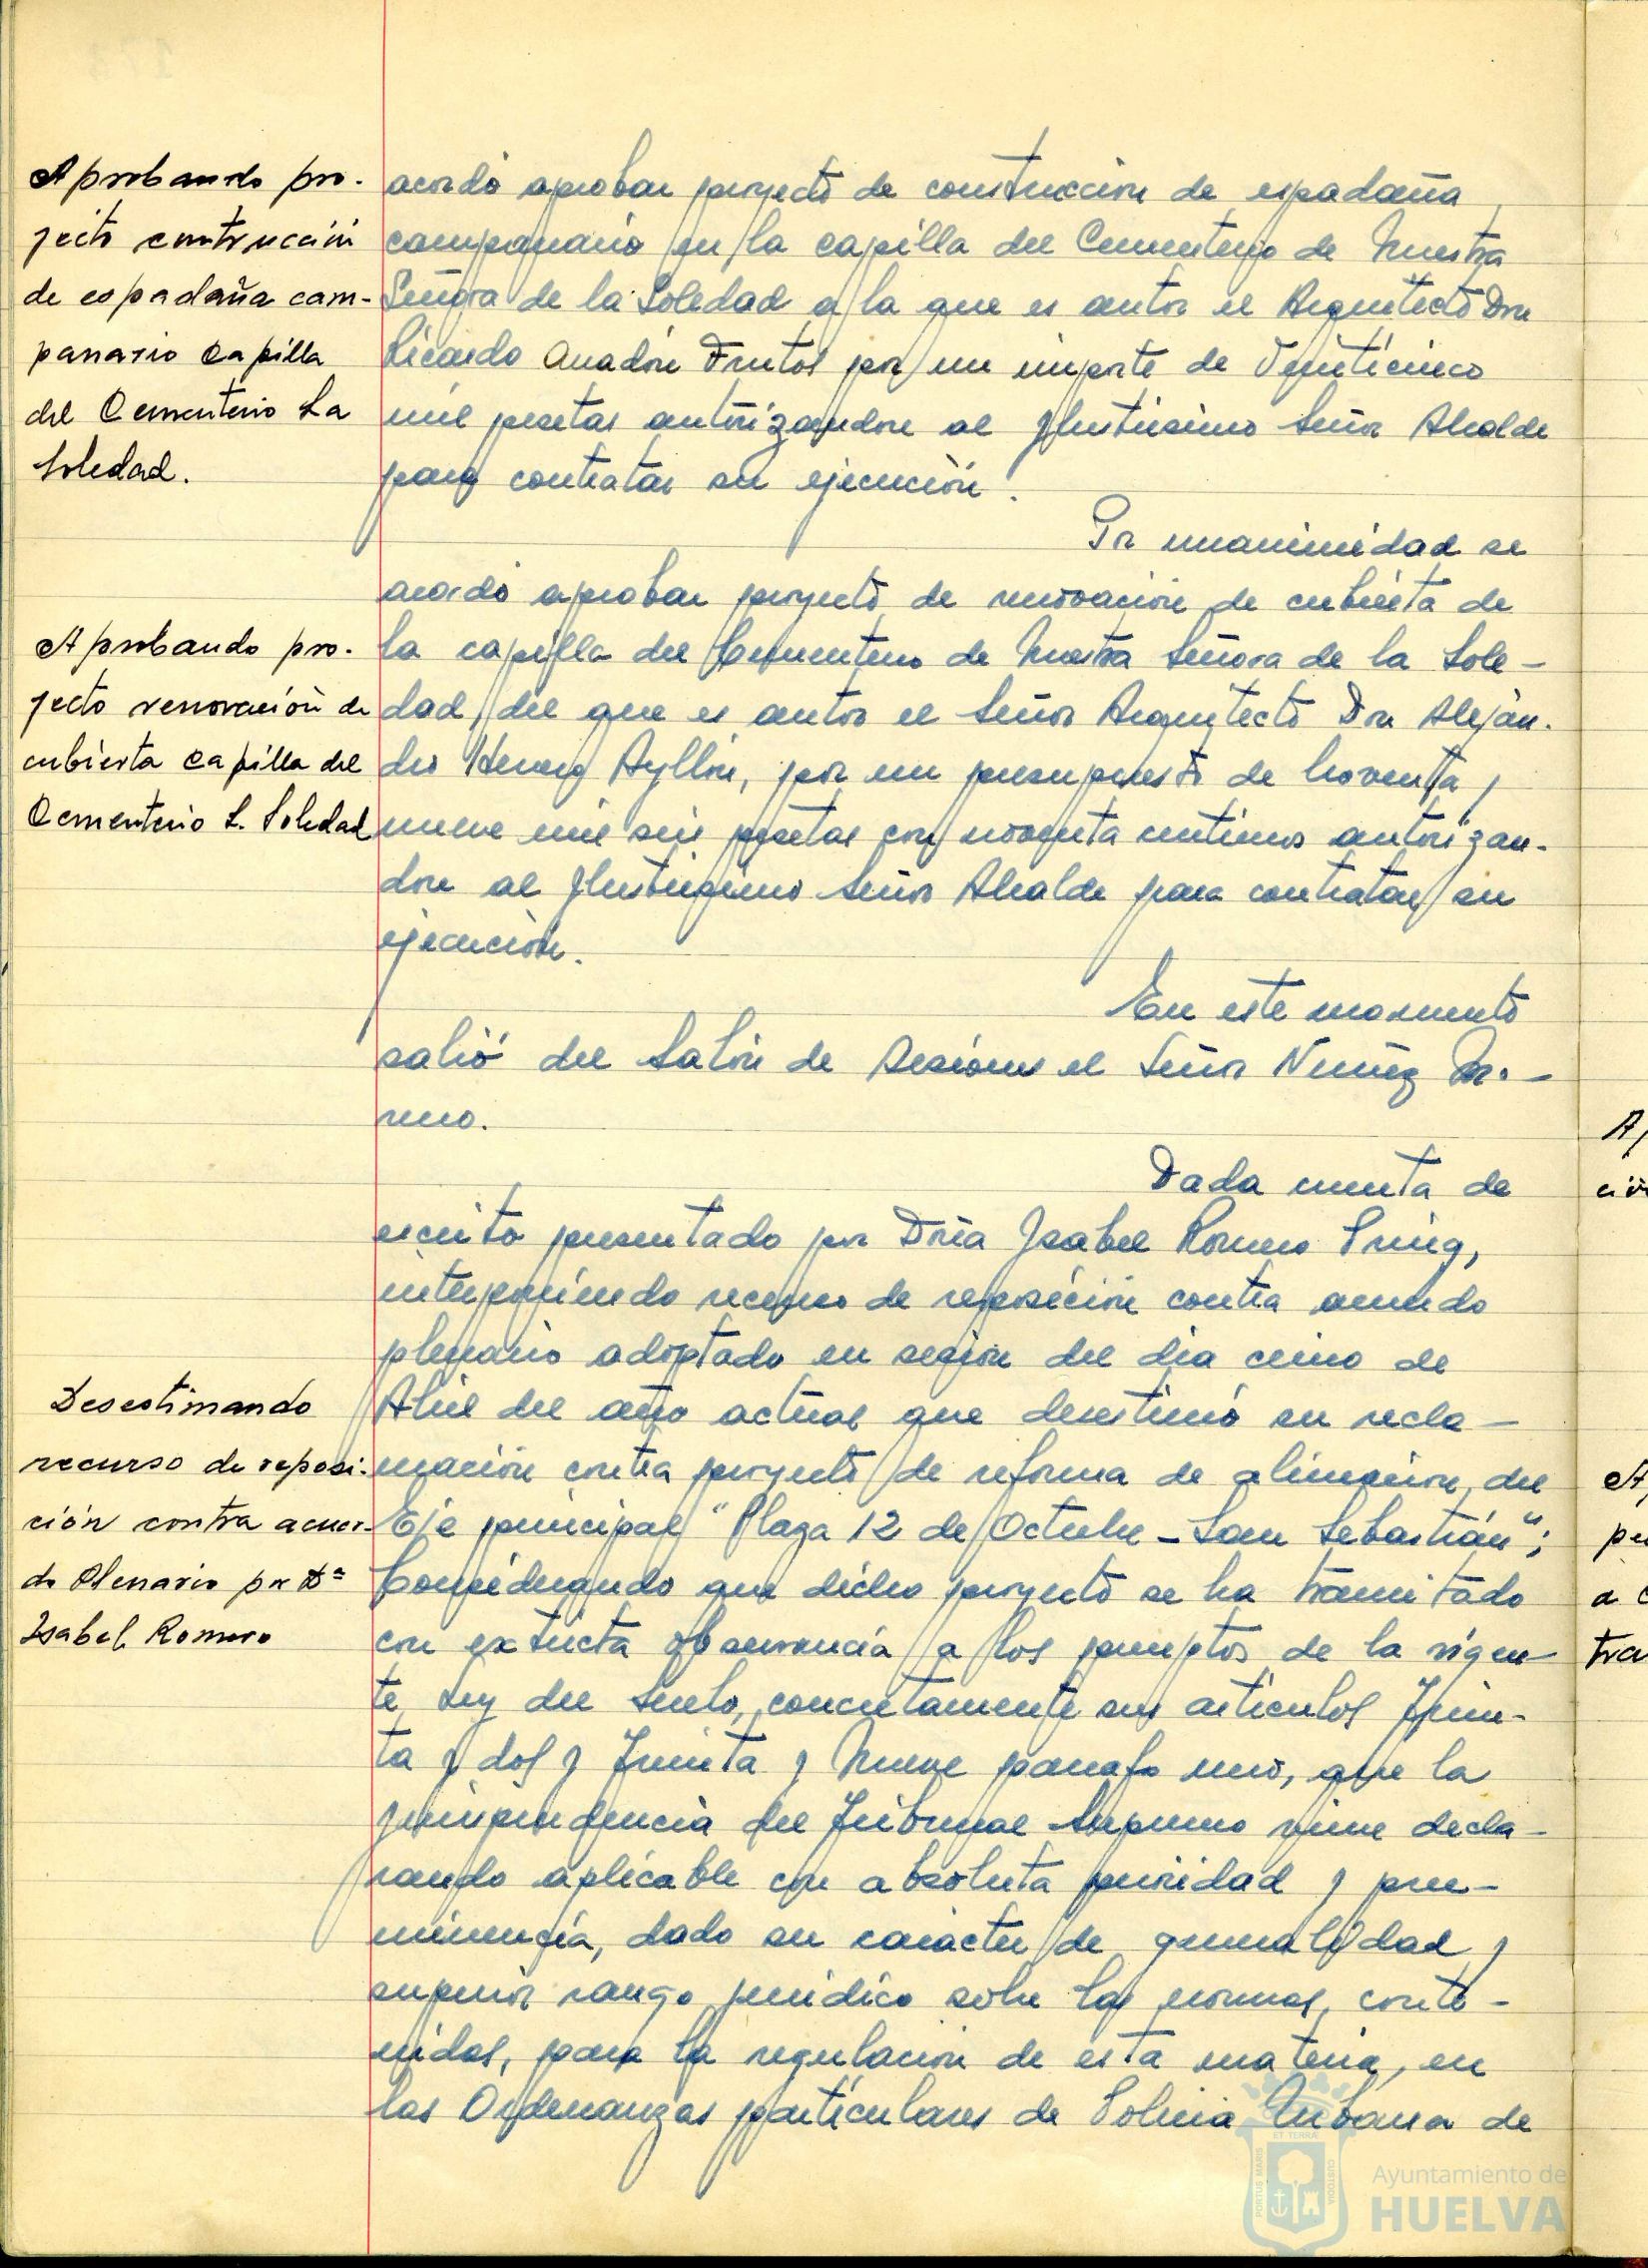 Aprobando pro-
yecto contrucción
de espadaña cam-
panario capilla
del Cementerio La
Soledad.
acordó aprobar proyecto de construccion de espadaña
campanario en la capilla del Cementerio de Nuestra
Señora de la Soledad a la que es autor el Arquitecto Don
Ricardo Anadón Frutos por un importe de Veinticinco
mil pesetas autorizandose al Ilustrisimo Señor Alcalde
para contratar su ejecución.
Por unanimidad se
acordó aprobar proyecto de renovación de cubierta de
la capilla del Cementerio de Nuestra Señora de la Sole-
dad, del que es autor el Señor Arquitecto Don Alejan-
dro Herrero Ayllón, por un presupuesto de Noventa y
nueve mil seis pesetas con noventa centimos autorizan-
dose al Ilustrisimo Señor Alcalde para contratar su
ejecución.
Aprobando pro-
yecto renovación de
cubierta capilla del
Cementerio S. Soledad
En este momento
salió del Salón de Sesiones el Señor Nuñez Mo-
reno.
Dada cuenta de
escrito presentado por Doña Isabel Romero Puig,
interponiendo recurso de reposición contra acuerdo
plenario adoptado en sesión del dia cinco de
Abril del año actual que desestimó su recla-
mación contra proyecto de reforma de alineación del
Eje principal "Plaza 12 de Octubre - San Sebastián";
Considerando que dicho proyecto se ha tramitado
con extricta observancia a los preceptos de la vigen-
te Ley del Suelo, concretamente sus articulos Trein-
ta y dos y Treinta y Nueve parrafo uno, que la
jurisprudencia del Tribunal Supremo viene decla-
rando aplicable con absoluta prioridad y pree-
minencia, dado su caracter de generalidad y
superior rango juridico sobre las normas, conte-
nidas, para la regulación de esta materia, en
las Ordenanzas particulares de Policia Urbana de
Desestimando
recurso de reposi-
ción contra acuer-
do Plenario por Dª
Isabel Romero
Ayuntamiento de
HUELVA